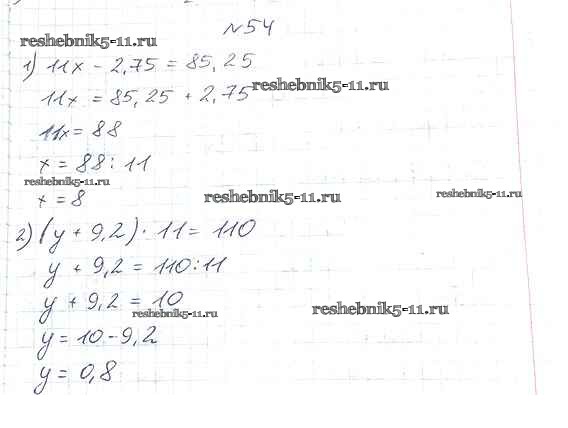 №54
reshebnik5-11.ru
1) 11x - 2,75 = 85,25
11x = 85,25 + 2,75
reshebnik5-11.ru
11x = 88
x = 88 : 11
reshebnik5-11.ru
x = 8
reshebnik5-11.ru
reshebnik5-11.ru
2) (y + 9,2) · 11 = 110
y + 9,2 = 110 : 11
y + 9,2 = 10
reshebnik5-11.ru
reshebnik5-11.ru
y = 10 - 9,2
y = 0,8